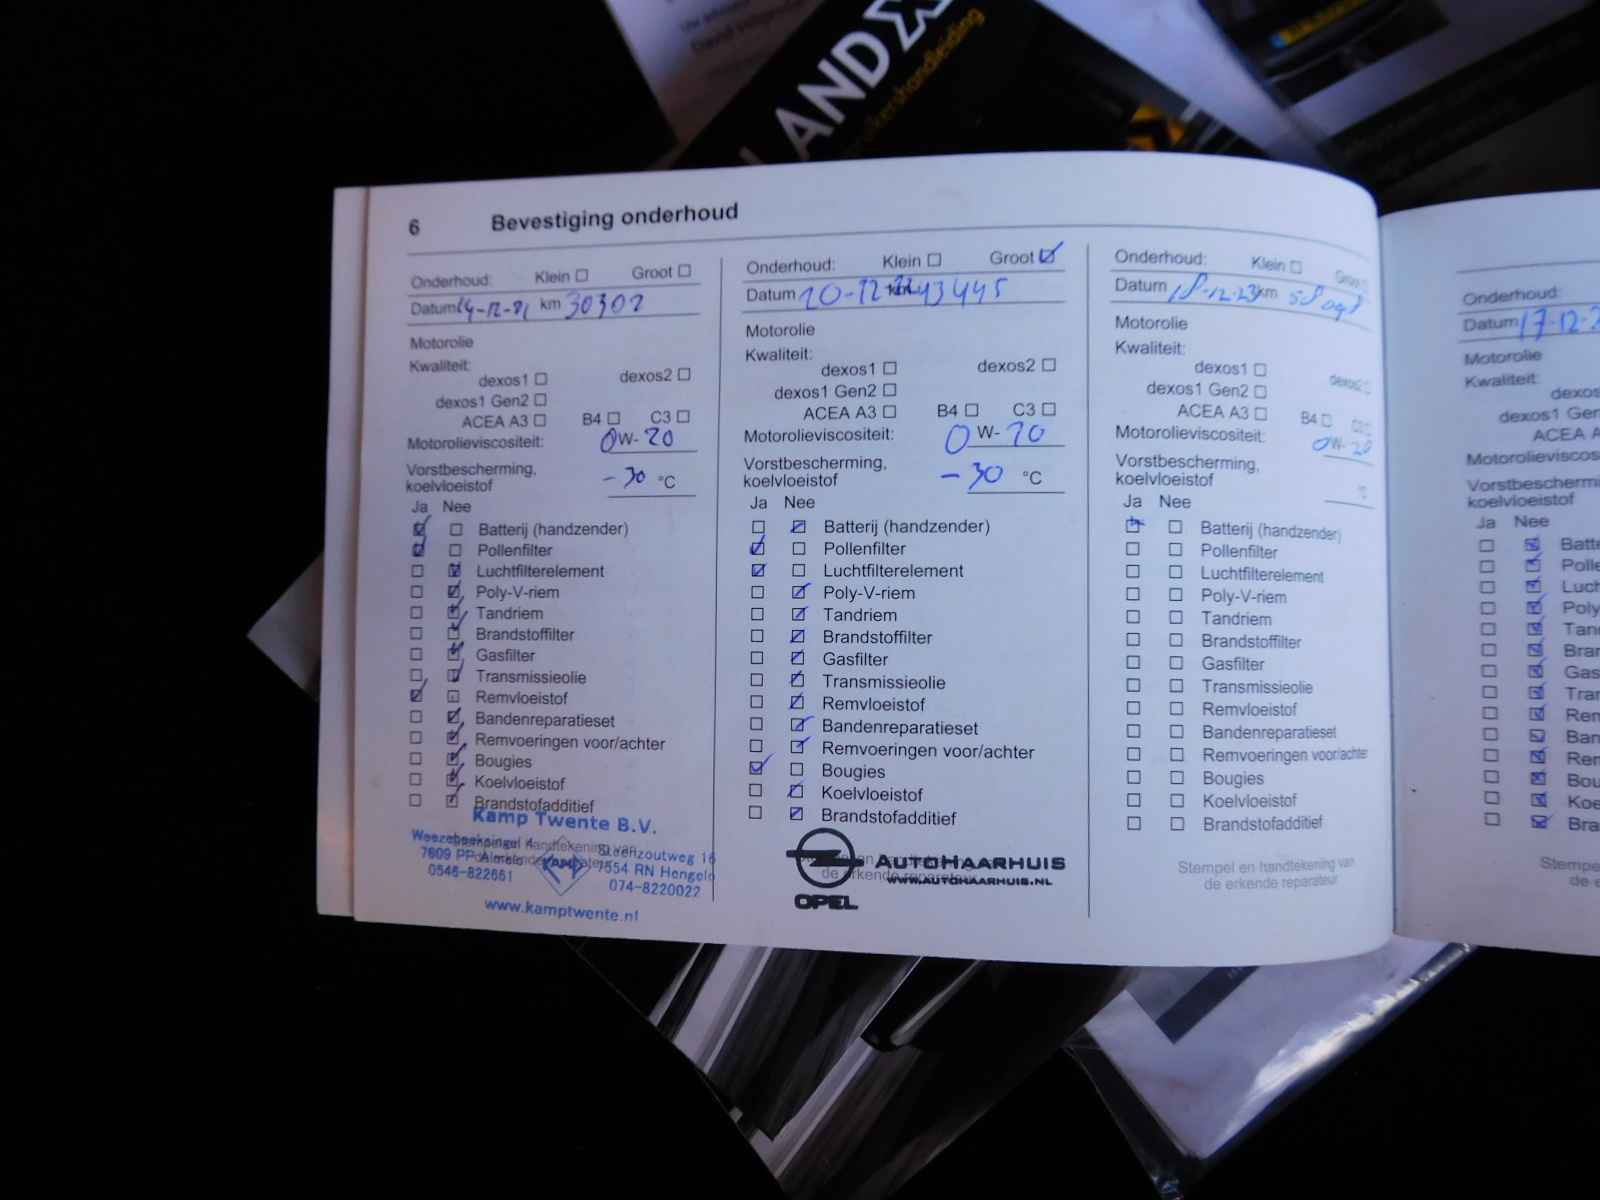 LANDX
6 Bevestiging onderhoud
Onderhoud: Klein Groot
Datum 14-12-21 km 30302
Motorolie
Kwaliteit:
dexos1 dexos2
dexos1 Gen2
ACEA A3 B4 C3
Motorolieviscositeit: 0W-20
Vorstbescherming,
koelvloeistof -30 °C
Ja Nee
Batterij (handzender)
Pollenfilter
Luchtfilterelement
Poly-V-riem
Tandriem
Brandstoffilter
Gasfilter
Transmissieolie
Remvloeistof
Bandenreparatieset
Remvoeringen voor/achter
Bougies
Koelvloeistof
Brandstofadditief
Kamp Twente B.V.
Weezebeeksingel 4 Steenzoutweg 16
7609 PP Almelo KAMP 7554 RN Hengelo
0546-822661 074-8220022
www.kamptwente.nl
Onderhoud: Klein Groot
Datum 20-12-22 km 43445
Motorolie
Kwaliteit:
dexos1 dexos2
dexos1 Gen2
ACEA A3 B4 C3
Motorolieviscositeit: 0W-20
Vorstbescherming,
koelvloeistof -30 °C
Ja Nee
Batterij (handzender)
Pollenfilter
Luchtfilterelement
Poly-V-riem
Tandriem
Brandstoffilter
Gasfilter
Transmissieolie
Remvloeistof
Bandenreparatieset
Remvoeringen voor/achter
Bougies
Koelvloeistof
Brandstofadditief
AUTOHAARHUIS
de erkende reparateur
WWW.AUTOHAARHUIS.NL
OPEL
Onderhoud: Klein Groot
Datum 18-12-23 km
Motorolie
Kwaliteit:
dexos1 dexos2
dexos1 Gen2
ACEA A3 B4 C3
Motorolieviscositeit: 0W-20
Vorstbescherming,
koelvloeistof °C
Ja Nee
Batterij (handzender)
Pollenfilter
Luchtfilterelement
Poly-V-riem
Tandriem
Brandstoffilter
Gasfilter
Transmissieolie
Remvloeistof
Bandenreparatieset
Remvoeringen voor/achter
Bougies
Koelvloeistof
Brandstofadditief
Stempel en handtekening van
de erkende reparateur
Onderhoud:
Datum 17-12-2
Motorolie
Kwaliteit:
dexos
dexos1 Gen
ACEA A
Motorolieviscos
Vorstbeschermi
koelvloeistof
Ja Nee
Batt
Polle
Luch
Poly
Tan
Bran
Gas
Tran
Rem
Ban
Rem
Bou
Koe
Bra
Stempe
de e